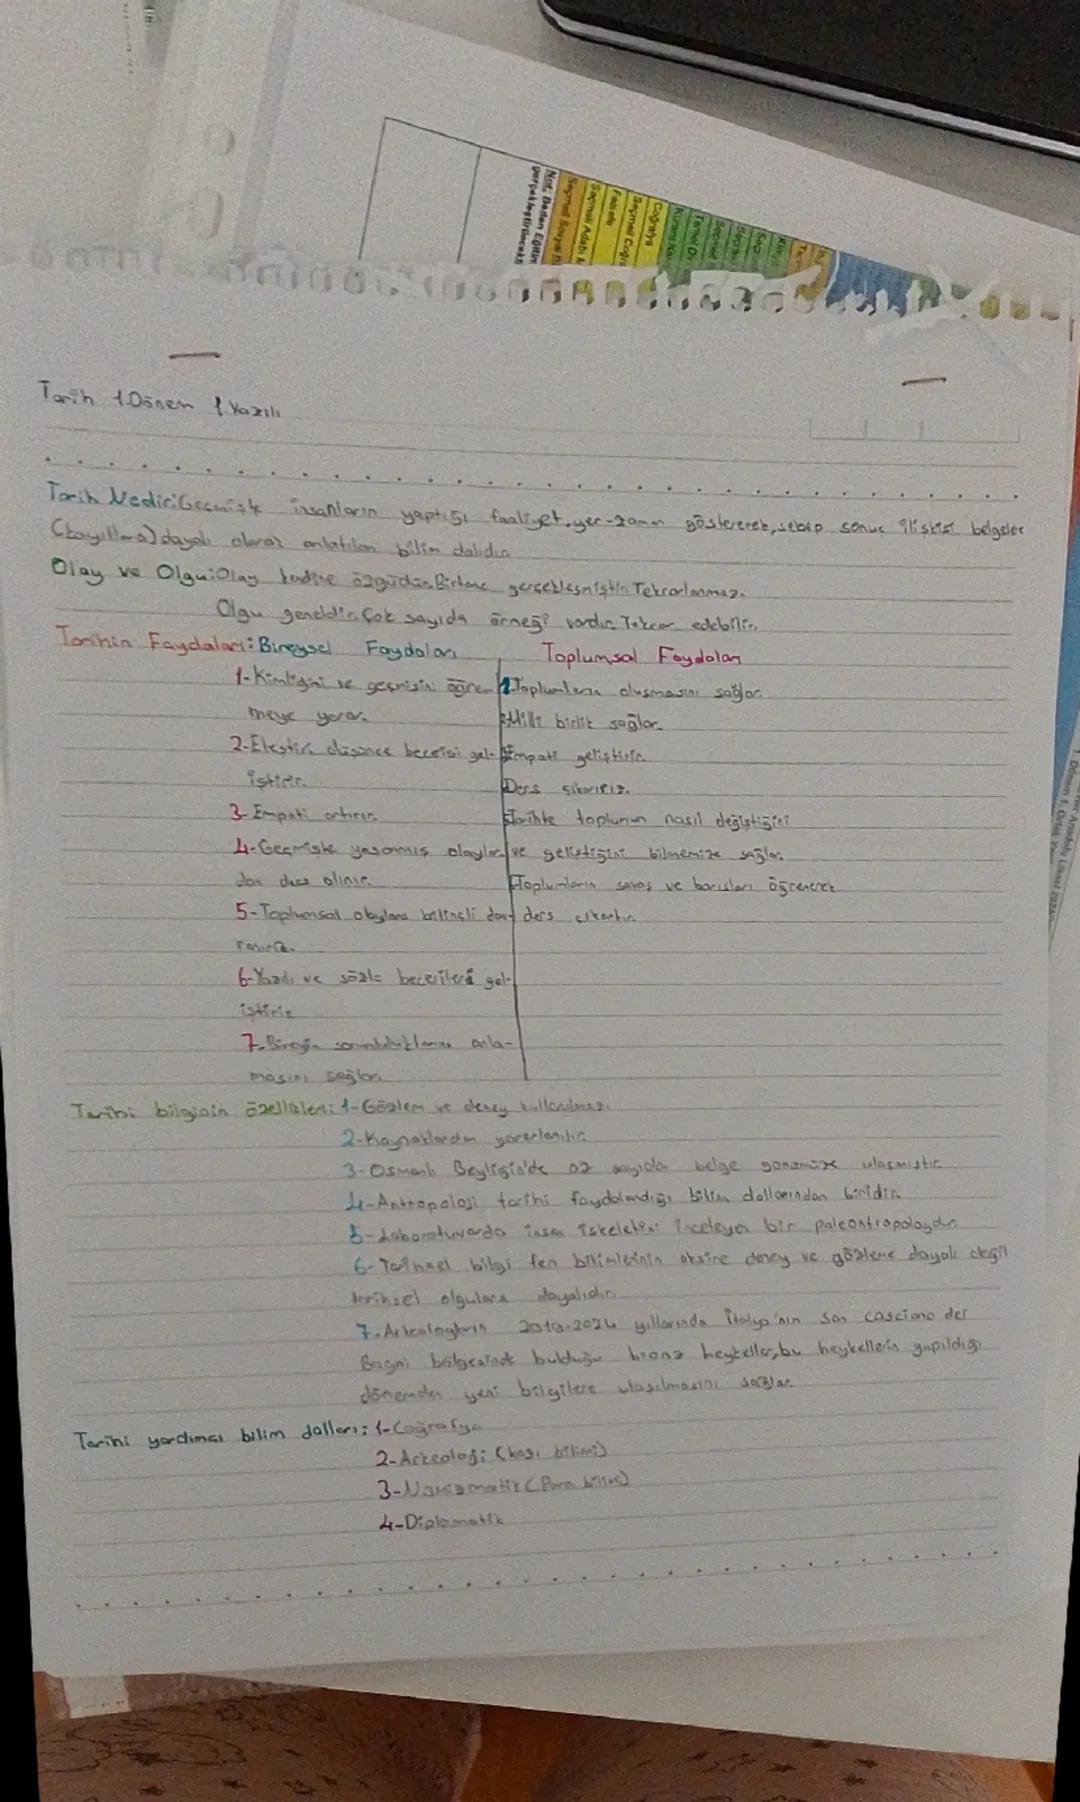 Not: Beden Eğitim
gerçekleştirilecekt
Seçmeli Sosyal B
Seçmeli Adabı M
Felsefe
Seçmeli Coğra
Coğrafya
Tarih 1.Dönem 1.Yazılı
Tarih Nedir:Geçmişte insanların yaptığı faaliyet, yer-zaman göstererek, sebep sonuç ilişkisi belgelere
dayalı olarak anlatılan bilim dalıdır.
Olay ve Olgu:Olay kendine özgüdür. Birkere gerçekleşmiştir. Tekrarlanmaz.
Olgu geneldir. Çok sayıda örneği vardır. Tekrar edebilir.
Tarihin Faydaları: Bireysel Faydaları Toplumsal Faydaları
1-Kimliğini ve geçmişini öğren- 1-Toplumların oluşmasını sağlar.
meye yarar. Milli birlik sağlar.
2-Eleştiri düşünce becerisi gel- Empati geliştirir.
iştirir. Ders çıkarırız.
3-Empati artırır. Tarihte toplumun nasıl değiştiğini
4-Geçmişte yaşanmış olaylar- ve geliştiğini bilmemize sağlar.
dan ders alınır. Toplumların savaş ve barışları öğrenerek
5-Toplumsal olaylara bilinçli dav- ders çıkartır.
ranırız.
6-Yazılı ve sözlü becerileri gel-
iştirir
7-Bireyin sorumluluklarını anla-
masını sağlar.
Tarihi bilginin özellikleri: 1-Gözlem ve deney kullanılmaz.
2-Kaynaklardan yararlanılır.
3-Osmanlı Beyliğin'de az sayıda belge günümüze ulaşmıştır.
4-Antropoloji tarihi faydalandığı bilim dallarından biridir.
5-Laboratuvarda insan iskeletini inceleyen bir paleontropologdur.
6-Tarihsel bilgi fen bilimlerinin aksine deney ve gözleme dayalı değil
tarihsel olgulara dayalıdır.
7-Arkeologların 2019-2024 yıllarında İtalya'nın San casciano dei
Bagni bölgesinde bulduğu bronz heykeller, bu heykellerin yapıldığı
dönemden yeni bilgilere ulaşılmasını sağlar.
Tarihi yardımcı bilim dalları: 1-Coğrafya
2-Arkeoloji (kazı bilimi)
3-Nümizmatik (Para bilimi)
4-Diplomatik